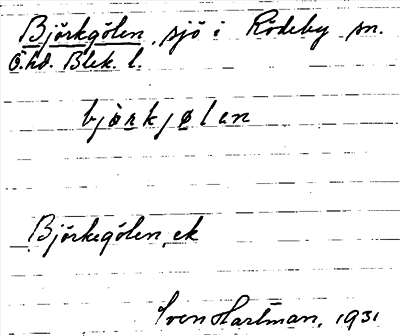 Björkgölen, sjö i Rödeby sn.
Ö. hd. Blek. l.
bjørkjølan
Björkegölen, ek
Sven Hartman, 1931